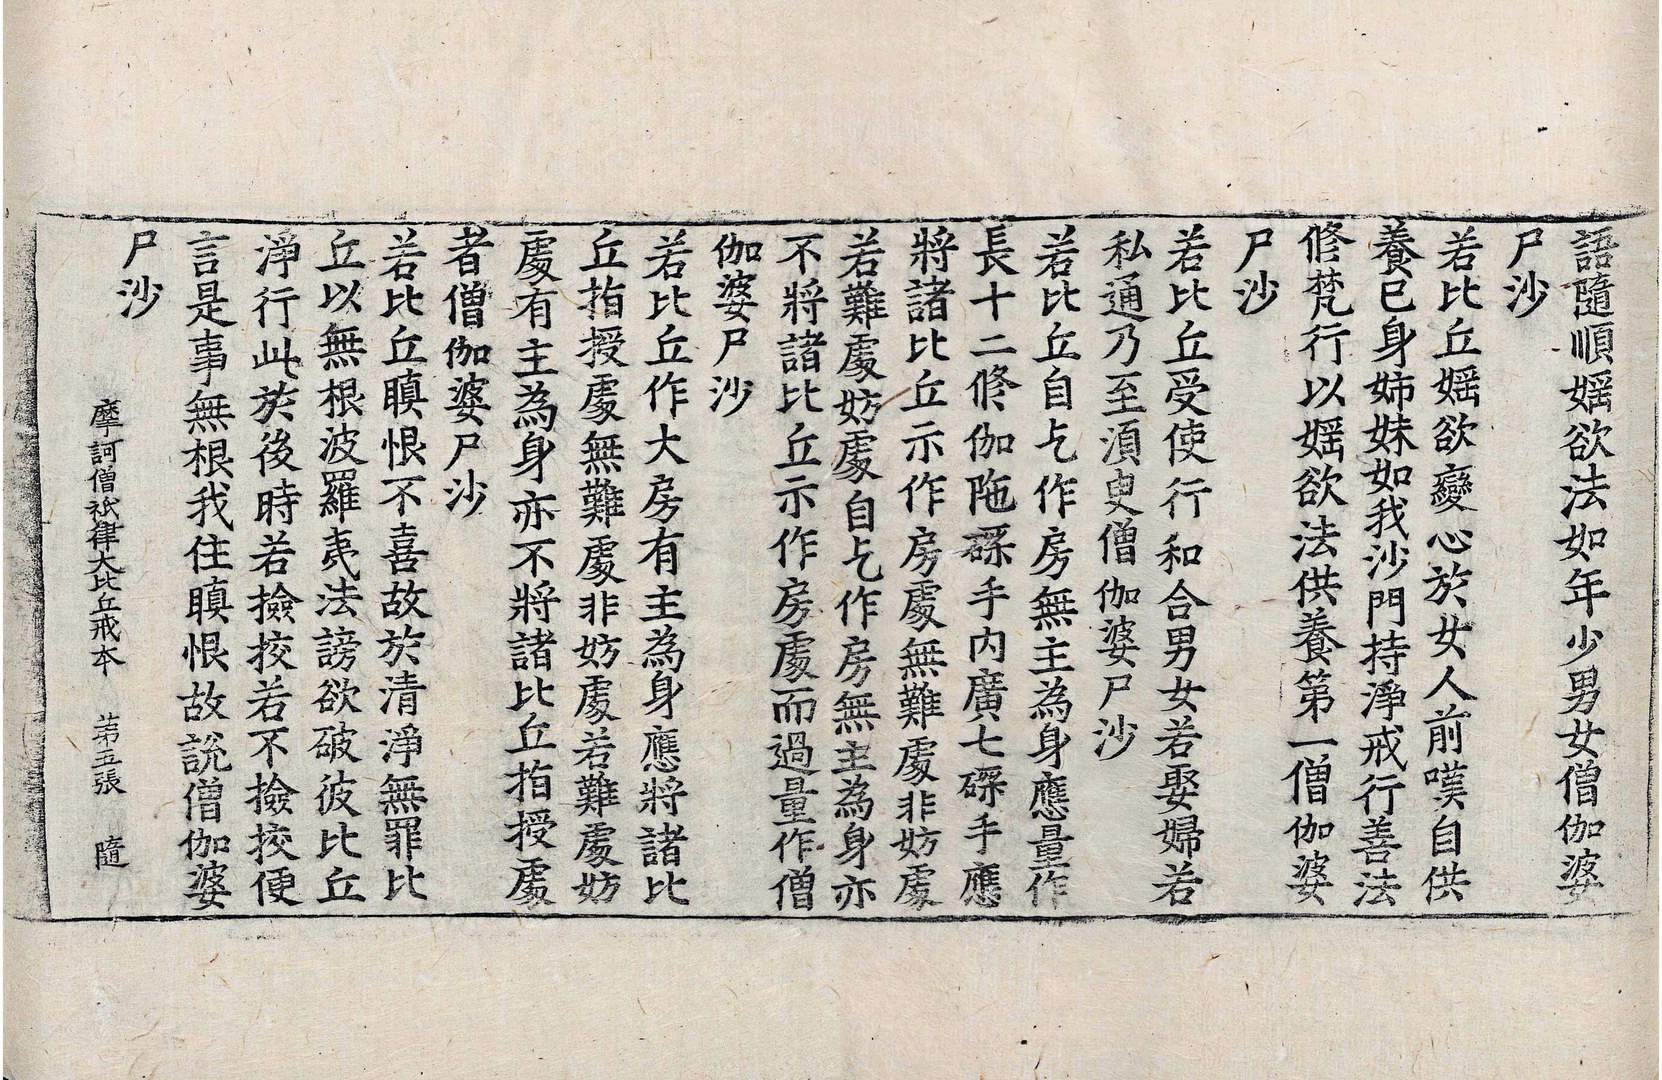 語隨順婬欲法如年少男女僧伽婆
尸沙
若比丘婬欲變心於女人前嘆自供
養已身姊妹如我沙門持淨戒行善法
修梵行以婬欲法供養第一僧伽婆
尸沙
若比丘受使行和合男女若娶婦若
私通乃至湏臾僧伽婆尸沙
若比丘自乞作房無主為身應量作
長十二修伽陁磔手內廣七磔手應
將諸比丘示作房處無難處非妨處
若難處妨處自乞作房無主為身亦
不將諸比丘示作房處而過量作僧
伽婆尸沙
若比丘作大房有主為身應將諸比
丘指授處無難處非妨處若難處妨
處有主為身亦不將諸比丘指授處
者僧伽婆尸沙
若比丘瞋恨不喜故於清淨無罪比
丘以無根波羅夷法謗欲破彼比丘
淨行此於後時若撿挍若不撿挍便
言是事無根我住瞋恨故說僧伽婆
尸沙
摩訶僧祇律大比丘戒本 苐五張 隨